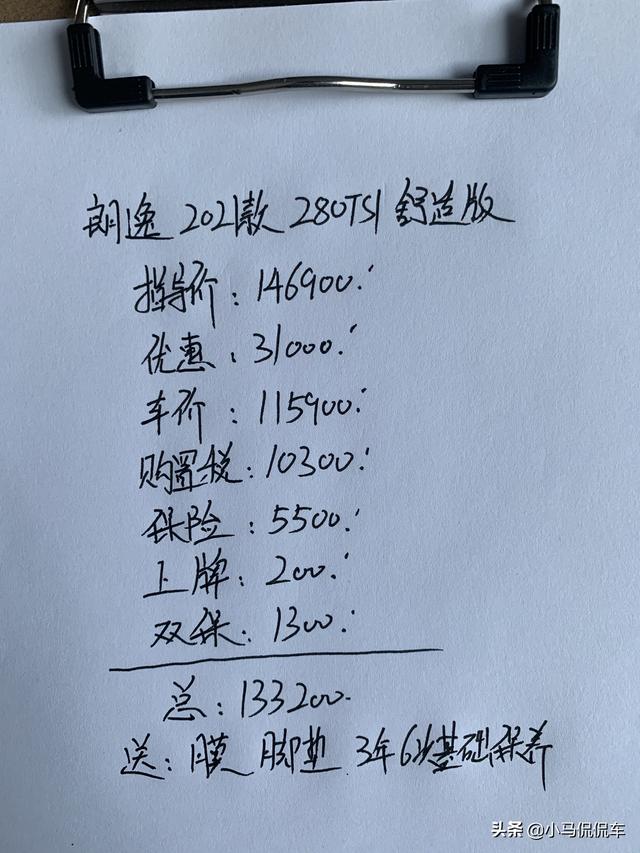 朗逸 2021款 280TSI 舒适版
指导价：146900.
优惠：31000.
车价：115900.
购置税：10300.
保险：5500.
上牌：200.
双保：1300.
总：133200.
送：膜 脚垫 3年6次基础保养
头条 @小马侃侃车